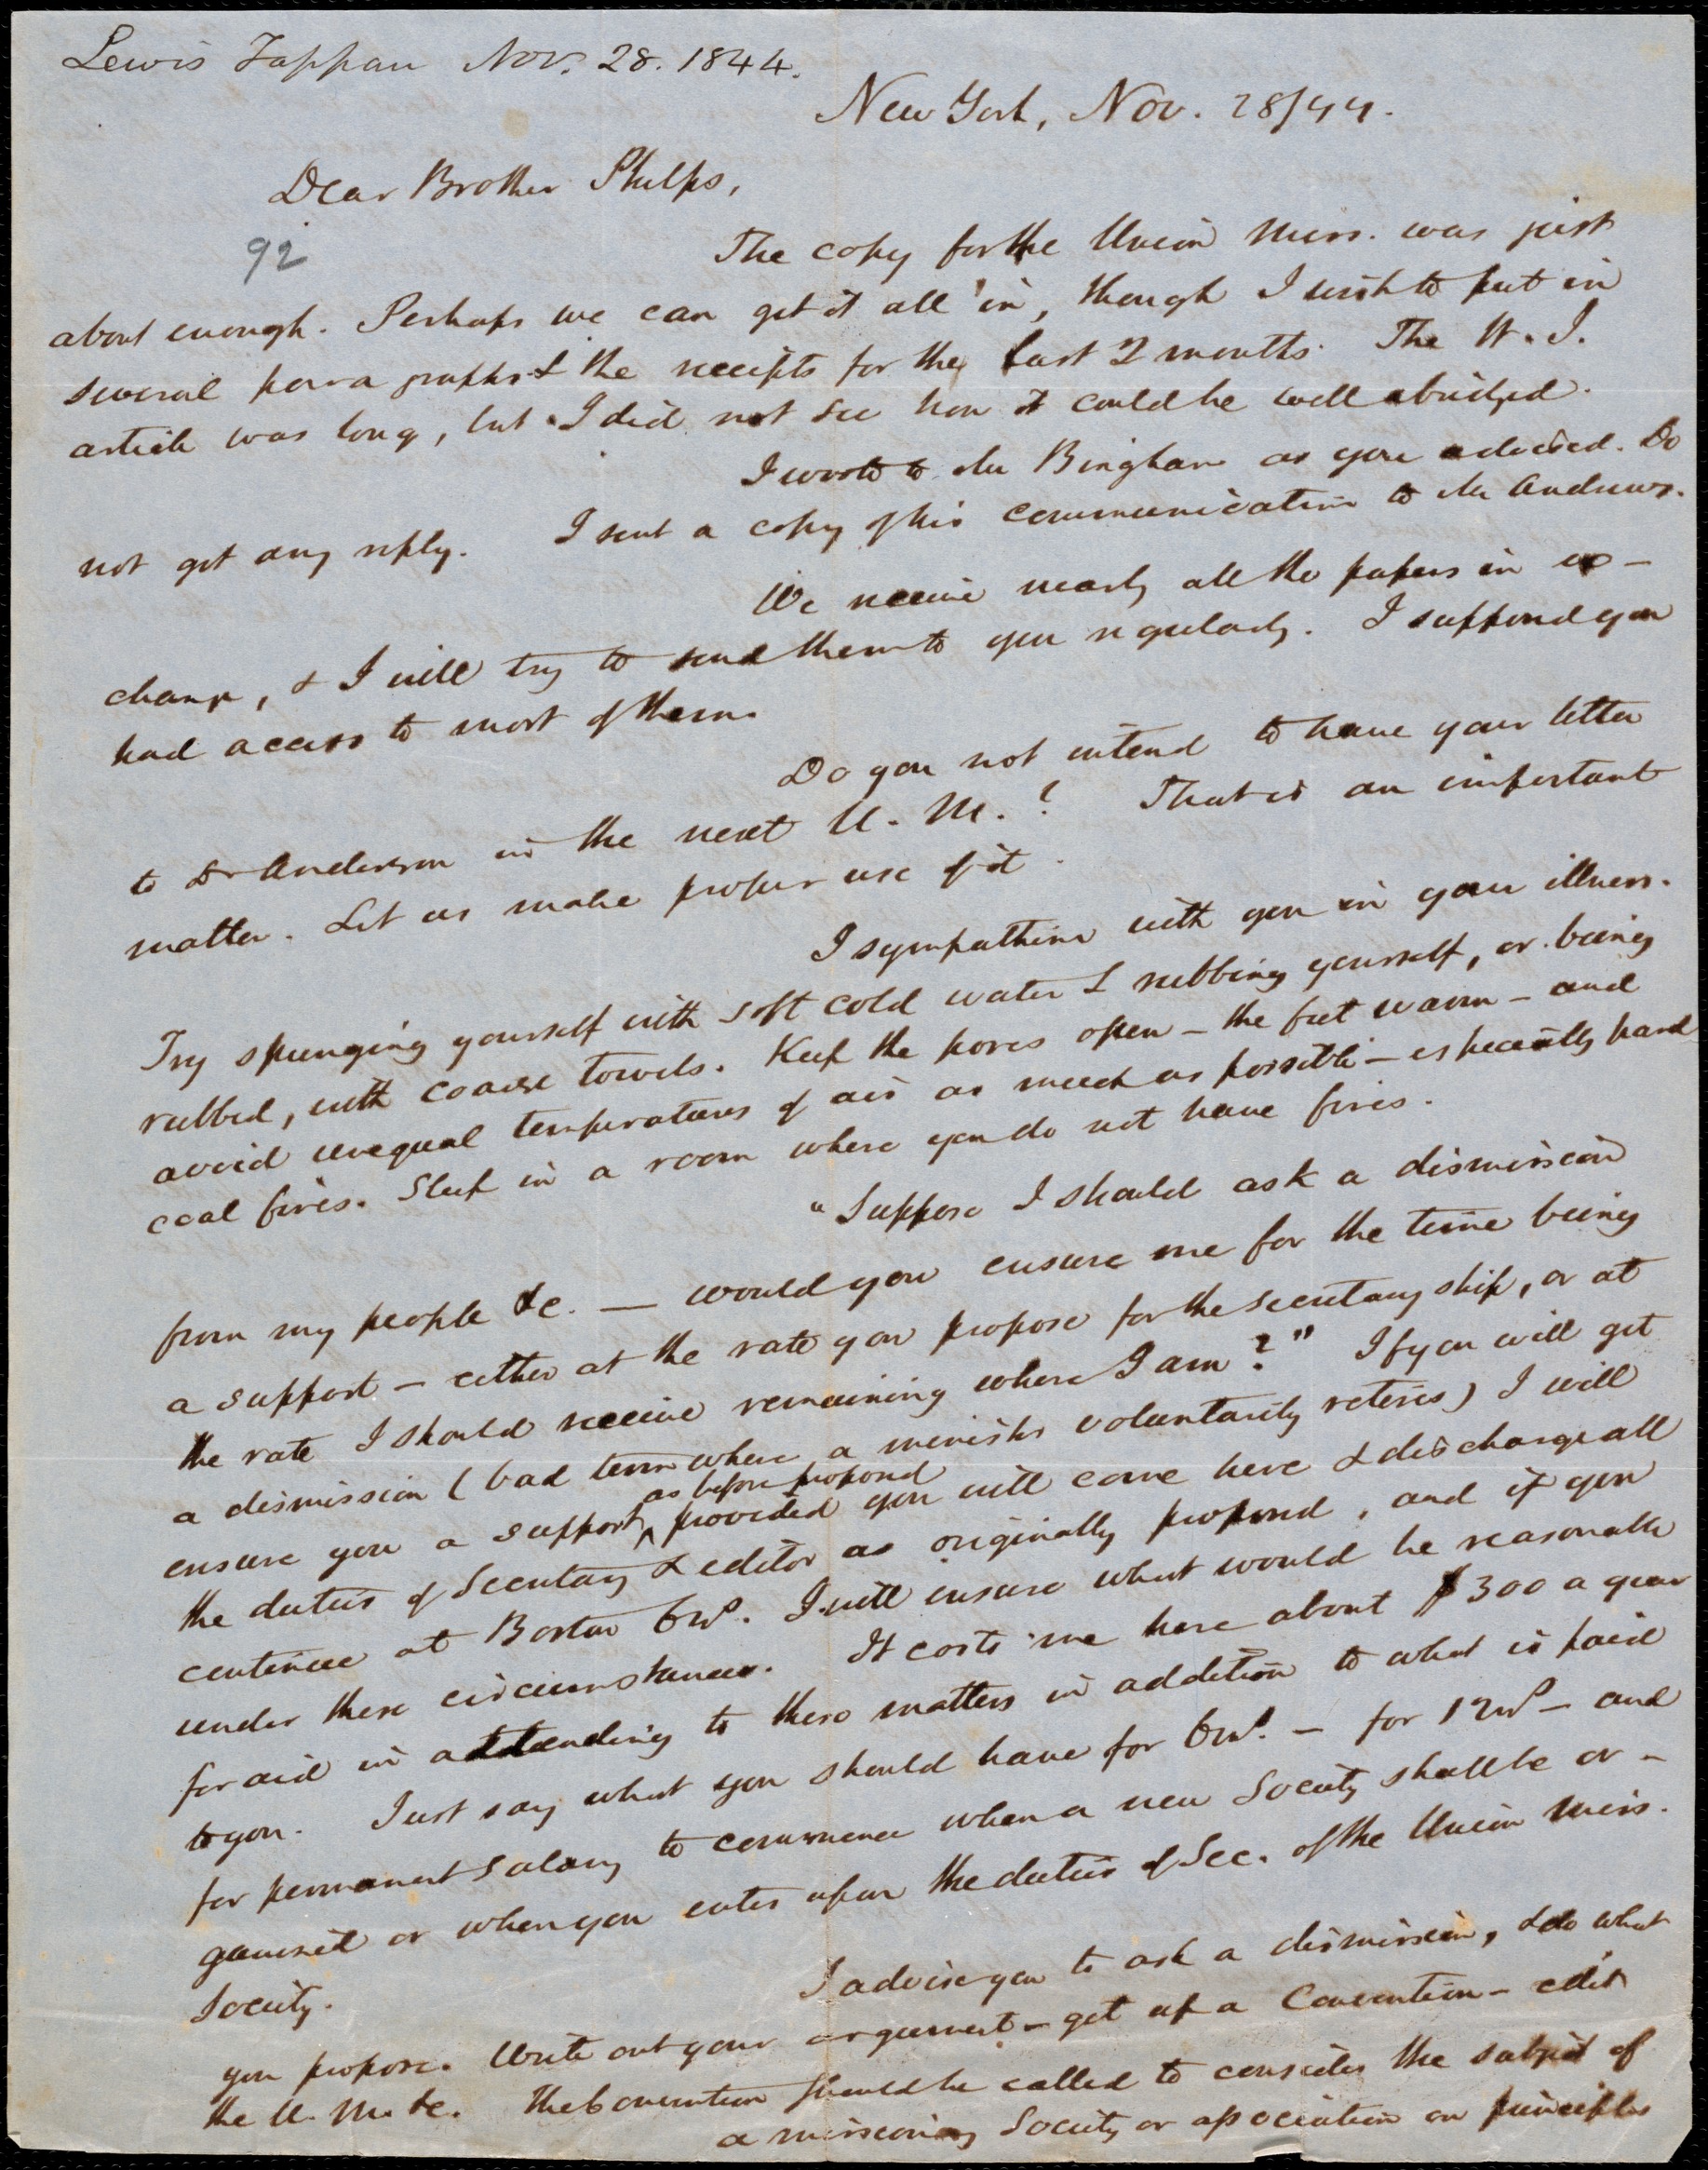 Lewis Tappan Nov. 28. 1844.
New York, Nov. 28/44.
Dear Brother Phelps,
92
The copy for the Union Miss. was just
about enough. Perhaps we can get it all in, though I wish to put in
several paragraphs & the receipts for the last 2 months. The W. I.
article was long, but I did not see how it could be well abridged.
I wrote to Mr Bingham as you advised. Do
not get any reply. I sent a copy of his communication to Mr Andrews.
We receive nearly all the papers in ex-
change, & I will try to send them to you regularly. I supposed you
had access to most of them.
Do you not intend to have your letter
to Dr Anderson in the next U. M.? That is an important
matter. Let us make proper use of it.
I sympathise with you in your illness.
Try spunging yourself with soft cold water & rubbing yourself, or being
rubbed, with coarse towels. Keep the pores open - the feet warm - and
avoid unequal temperatures of air as much as possible - especially hard
coal fires. Sleep in a room where you do not have fires.
"Suppose I should ask a dismission
from my people &c. — would you ensure me for the time being
a support - either at the rate you propose for the secretaryship, or at
the rate I should receive remaining where I am?" If you will get
a dismission (bad term where a minister voluntarily retires) I will
as before proposed
ensure you a support ^ provided you will come here & discharge all
the duties of Secretary & editor as originally proposed, and if you
continue at Boston 6 mos. I will ensure what would be reasonable
under these circumstances. It costs me here about $300 a year
for aid in attending to these matters in addition to what is paid
to you. Just say what you should have for 6 mos. - for 12 mos - and
for permanent salary to commence when a new Society shall be or-
ganized or when you enter upon the duties of Sec. of the Union Miss.
Society.
I advise you to ask a dismission, & do what
you propose. Write out your argument - get up a Convention - edit
the U. M. &c. The Convention should be called to consider the subject of
a missionary Society or association on principles